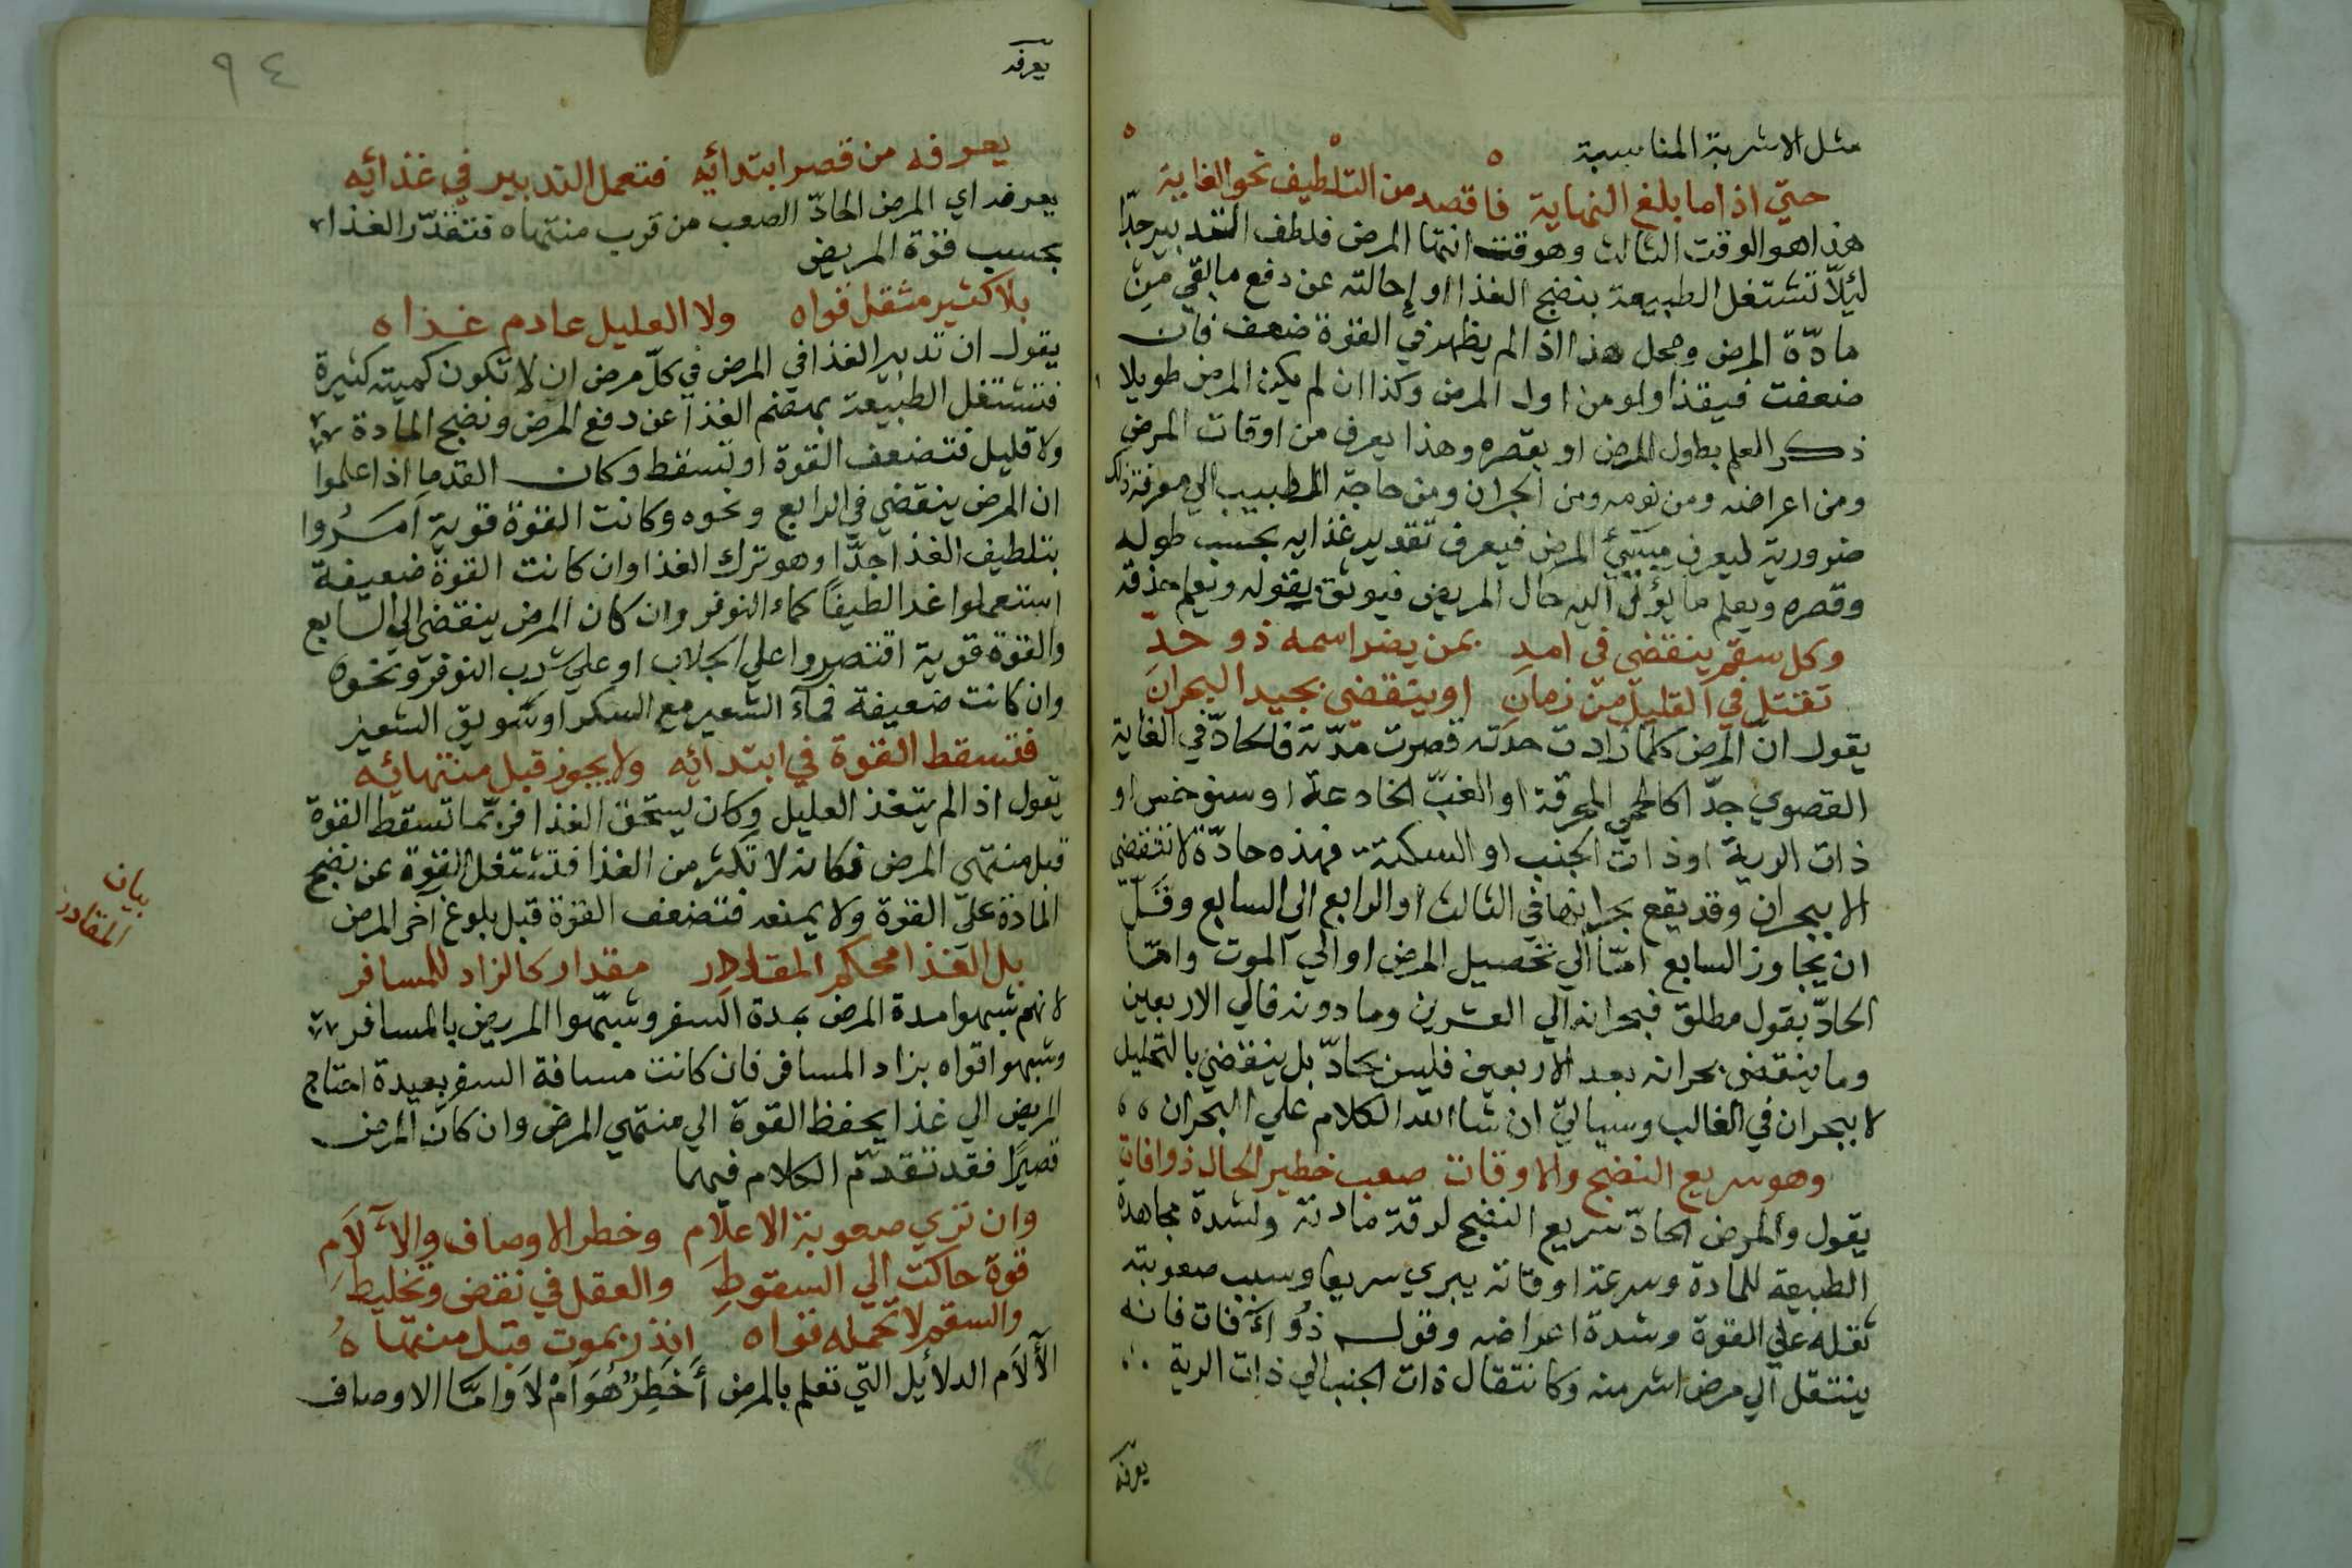 مثل الاشربة المناسبة
حتي اذا ما بلغ النهاية فاقصد من التلطيف نحو الغاية
هذا هو الوقت الثالث وهو وقت انتها المرض فلطف التدبير جدّا
ليلّا تشتغل الطبيعة بنضج الغذا او إحالته عن دفع ما بقي من
مادّة المرض ومحل هذا اذا لم يظهر في القوة ضعف فان
ضعفت فيغذا ولو من اول المرض وكذا ان لم يكن المرض طويلا
ذكر العلم بطول المرض او بقصره وهذا يعرف من اوقات المرض
ومن اعراضه ومن نومه ومن البحران ومن حاجة الطبيب الي معرفة ذلك
ضرورية ليعرف المرض فيعرف تقدير غذايه بحسب طوله
وقصره ويعلم ما يؤل اليه حال المريض فيوثق بقوله ويعلم حذقه
وكل سقم ينقضي في امد بمن يضر اسمه ذو حدّ
تقتل في القليل من زمان او ينقضي بجيد البحران
يقول ان المرض كلما زادت حدته قصرت مدّته فالحادّ في الغاية
القصوي جدّا كالحمي المحرقة او الغبّ او
ذات الرية او ذات الجنب او السكتة فهذه حادّة لا تنقضي
الا ببحران وقد يقع بحرانها في الثالث او الرابع الي السابع وقلّ
ان يجاوز السابع امّا الي المرض او الي الموت وامّا
الحادّ بقول مطلق فبحرانه الي العشرين وما دونه فالي الاربعين
وما ينقضي بحرانه بعد الاربعين فليس بحادّ بل ينقضي بالتحليل
لا ببحران في الغالب وسياتي ان شا الله الكلام علي البحران
وهو سريع النضج والاوقات صعب خطير الحال ذو افات
يقول والمرض الحادّ سريع النضج لرقة مادته ولشدة مجاهدة
الطبيعة للمادة وسرعة اوقاته يبري سريعا وسبب صعوبته
ثقله علي القوة وشدة اعراضه وقوله ذو آفات فانه
ينتقل الي مرض اشر منه وكانتقال ذات الجنب الي ذات الرية
يعرفه
يعرفه
٩٤
يعرفه من قصر ابتدائه فتعمل التدبير في غذائه
يعرفه اي المرض الحادّ الصعب من قرب منتهاه فتقدّر الغذا
بحسب قوة المريض
بلا كثير مثقل قواه ولا العليل عادم غذاه
يقول ان تدبير الغذا في المرض في كلّ مرض ان لا تكون كميته كثيرة
فتشتغل الطبيعة بهضم الغذا عن دفع المرض ونضج المادة
ولا قليل فتضعف القوة او تسقط وكان القدما اذا علموا
ان المرض ينقضي في الرابع ونحوه وكانت القوة قوية اَمَرُوا
بتلطيف الغذا جدّا وهو ترك الغذا وان كانت القوة ضعيفة
استعملوا غذا لطيفًا كماء النوفر وان كان المرض ينقضي الي السابع
والقوة قوية اقتصروا علي الجلاب او علي شرب النوفر ونحوه
وان كانت ضعيفة فمآء الشعير مع السكر او سويق الشعير
فتسقط القوة في ابتدائه ولا يجوز قبل منتهائه
يقول اذا لم يتغذ العليل وكان يستحق الغذا فربّما تسقط القوة
قبل منتهي المرض فكانه لا تكثر من الغذا فتشتغل القوة عن نضج
المادة علي القوة ولا يمنعه فتضعف القوة قبل بلوغ آخر المرض
بل الغذا محكم المقادر مقدار كالزاد للمسافر
لانهم شبهوا مدة المرض بمدة السفر وشبّهوا المريض بالمسافر
وشبهوا قواه بزاد المسافر فان كانت مسافة السفر بعيدة احتاج
المريض الي غذا يحفظ القوة الي منتهي المرض وان كان المرض
قصيرًا فقد تقدّم الكلام فيهما
وان تري صعوبة الاعلام وخطر الاوصاف والآلَام
قوة حاكت الي السقوطِ والعقل في نقض وتخليط
والسقم لا تحمله قواه انذر بموت قبل منتهاهُ
الآلَام الدلائل التي تعلم بالمرض أَخَطِرٌ هُوَ امْ لَا وامَّا الاوصاف
بيان
المقادر